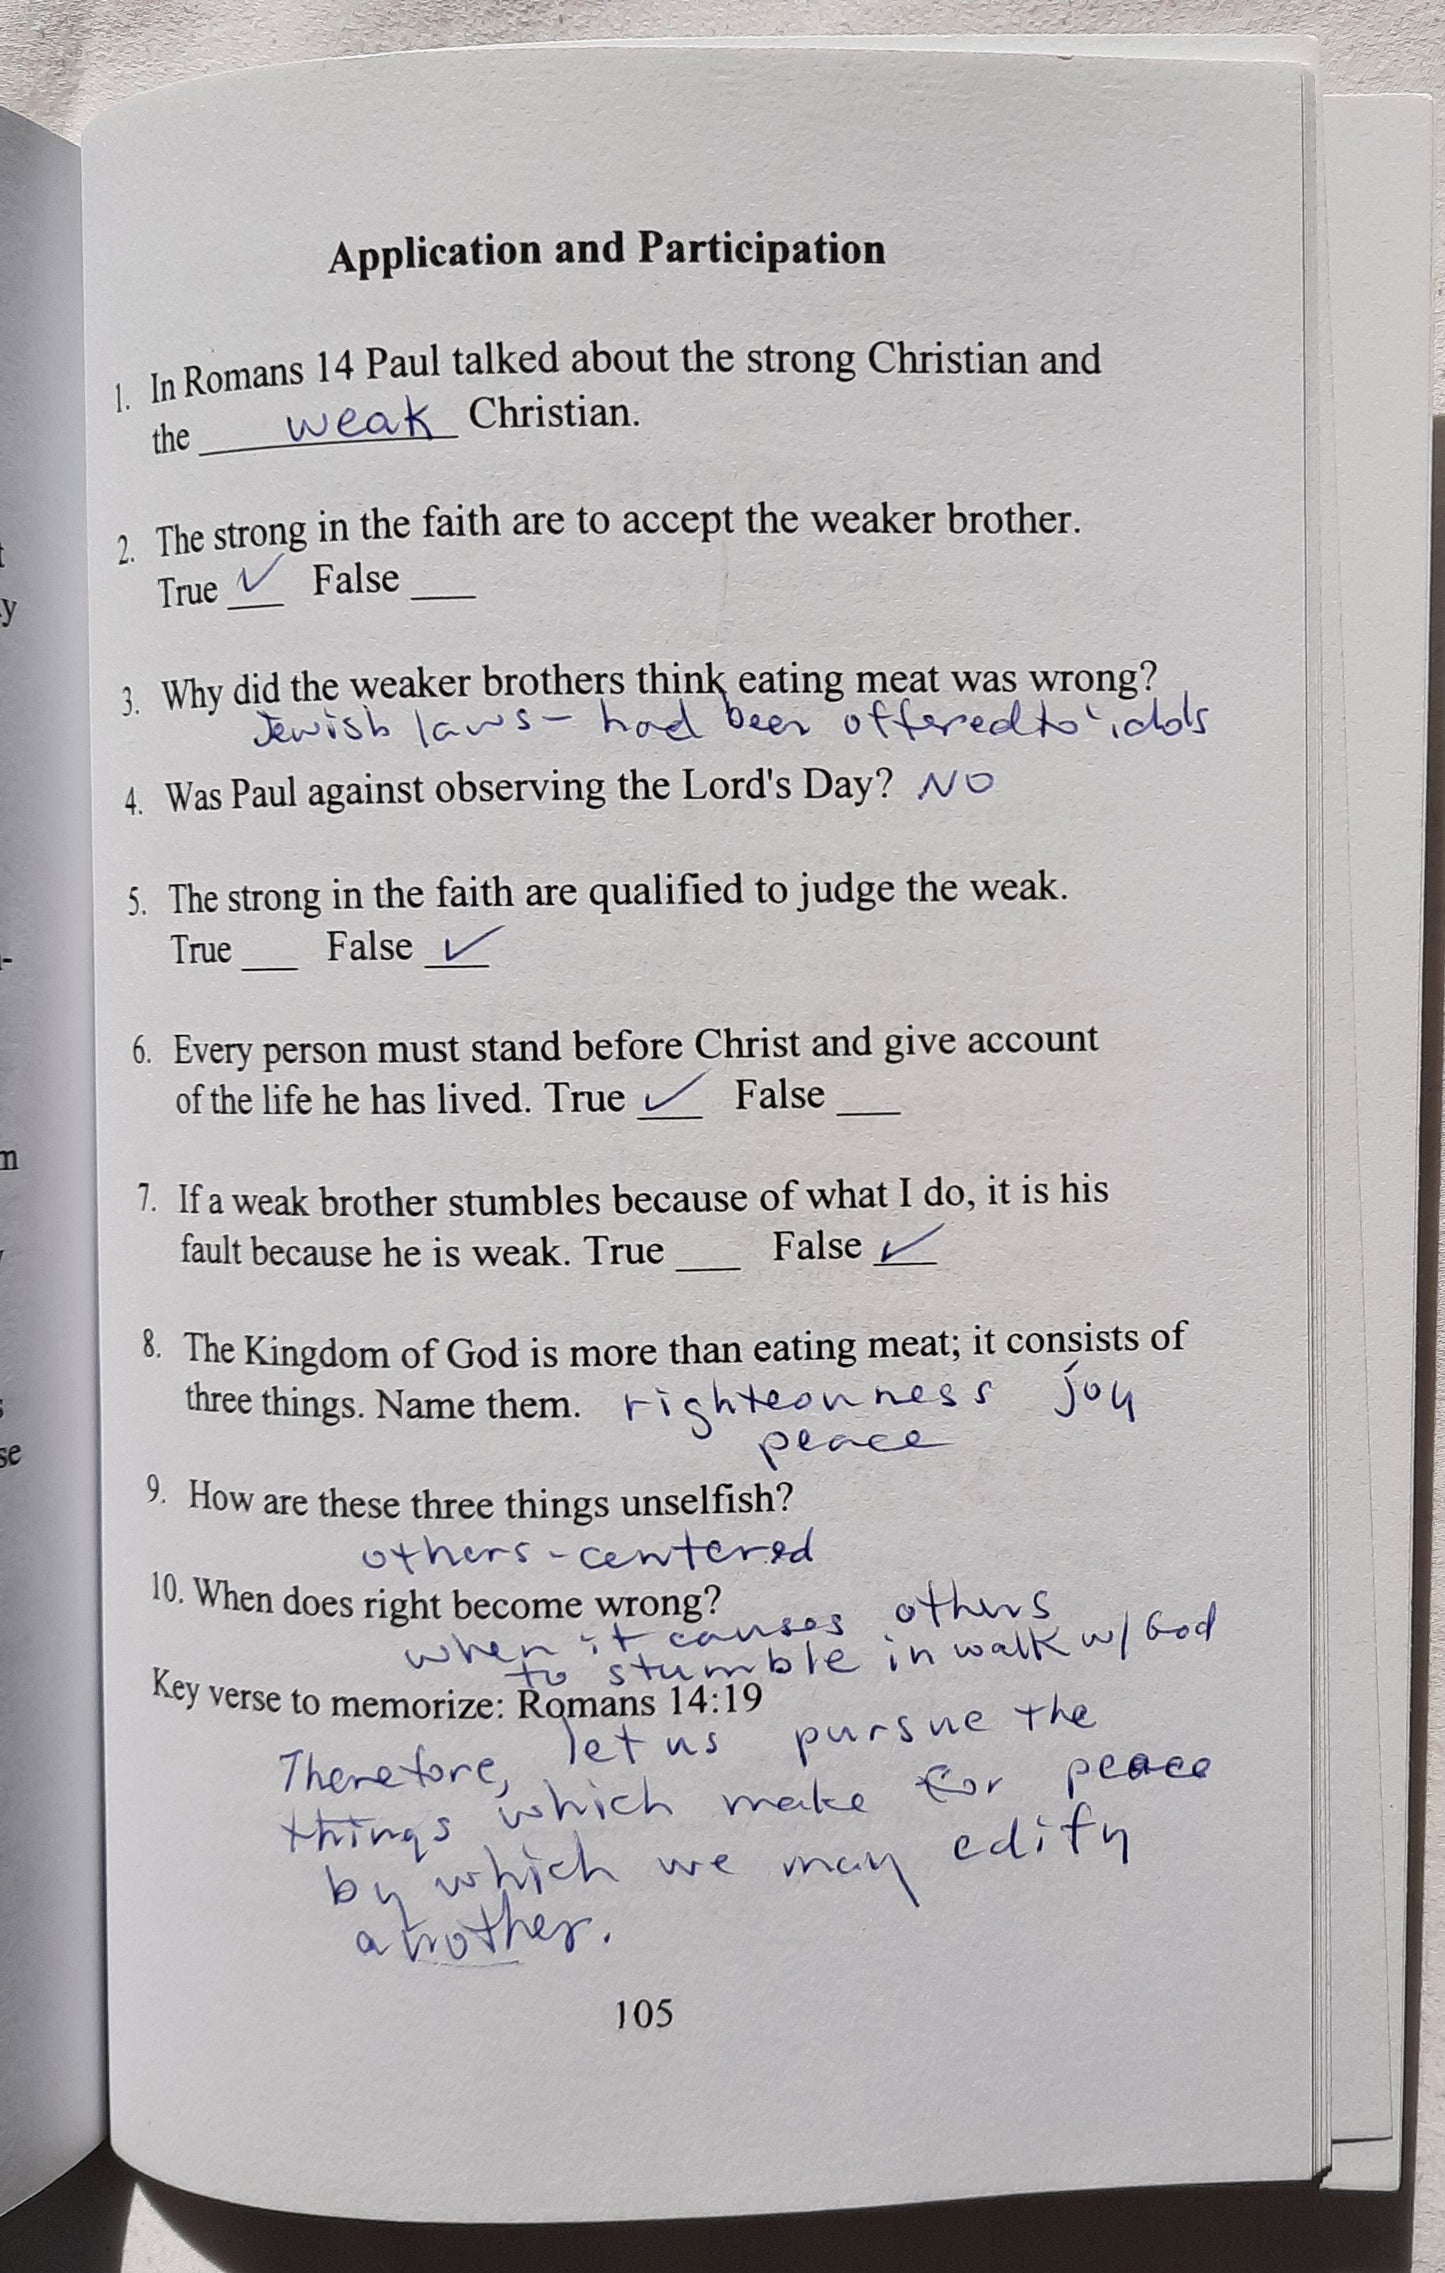 Application and Participation
1. In Romans 14 Paul talked about the strong Christian and
the weak Christian.
2. The strong in the faith are to accept the weaker brother.
True ✓ False ___
3. Why did the weaker brothers think eating meat was wrong?
Jewish laws - had been offered to idols
4. Was Paul against observing the Lord's Day? NO
5. The strong in the faith are qualified to judge the weak.
True ___ False ✓
6. Every person must stand before Christ and give account
of the life he has lived. True ✓ False ___
7. If a weak brother stumbles because of what I do, it is his
fault because he is weak. True ___ False ✓
8. The Kingdom of God is more than eating meat; it consists of
three things. Name them. righteousness joy
peace
9. How are these three things unselfish?
others-centered
10. When does right become wrong?
when it causes others
to stumble in walk w/ God
Key verse to memorize: Romans 14:19
Therefore, let us pursue the
things which make for peace
by which we may edify
another.
105
y
m
se